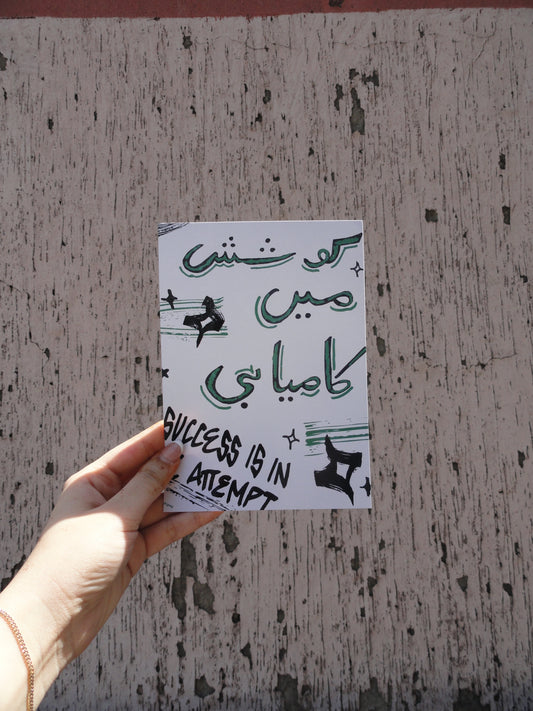 کوشش
میں
کامیابی
SUCCESS IS IN
ATTEMPT